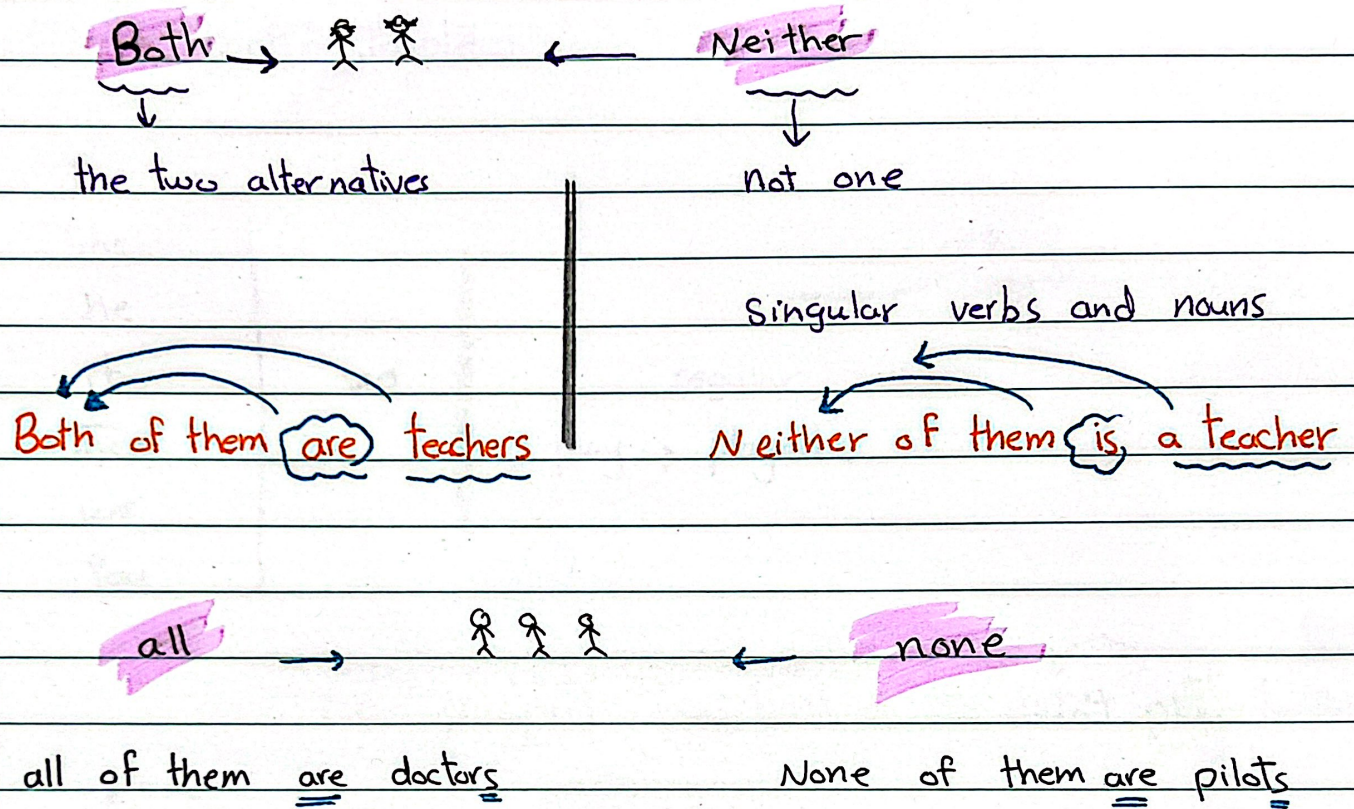 Both → ← Neither
the two alternatives not one
Singular verbs and nouns
Both of them are teachers Neither of them is a teacher
all → ← none
all of them are doctors None of them are pilots